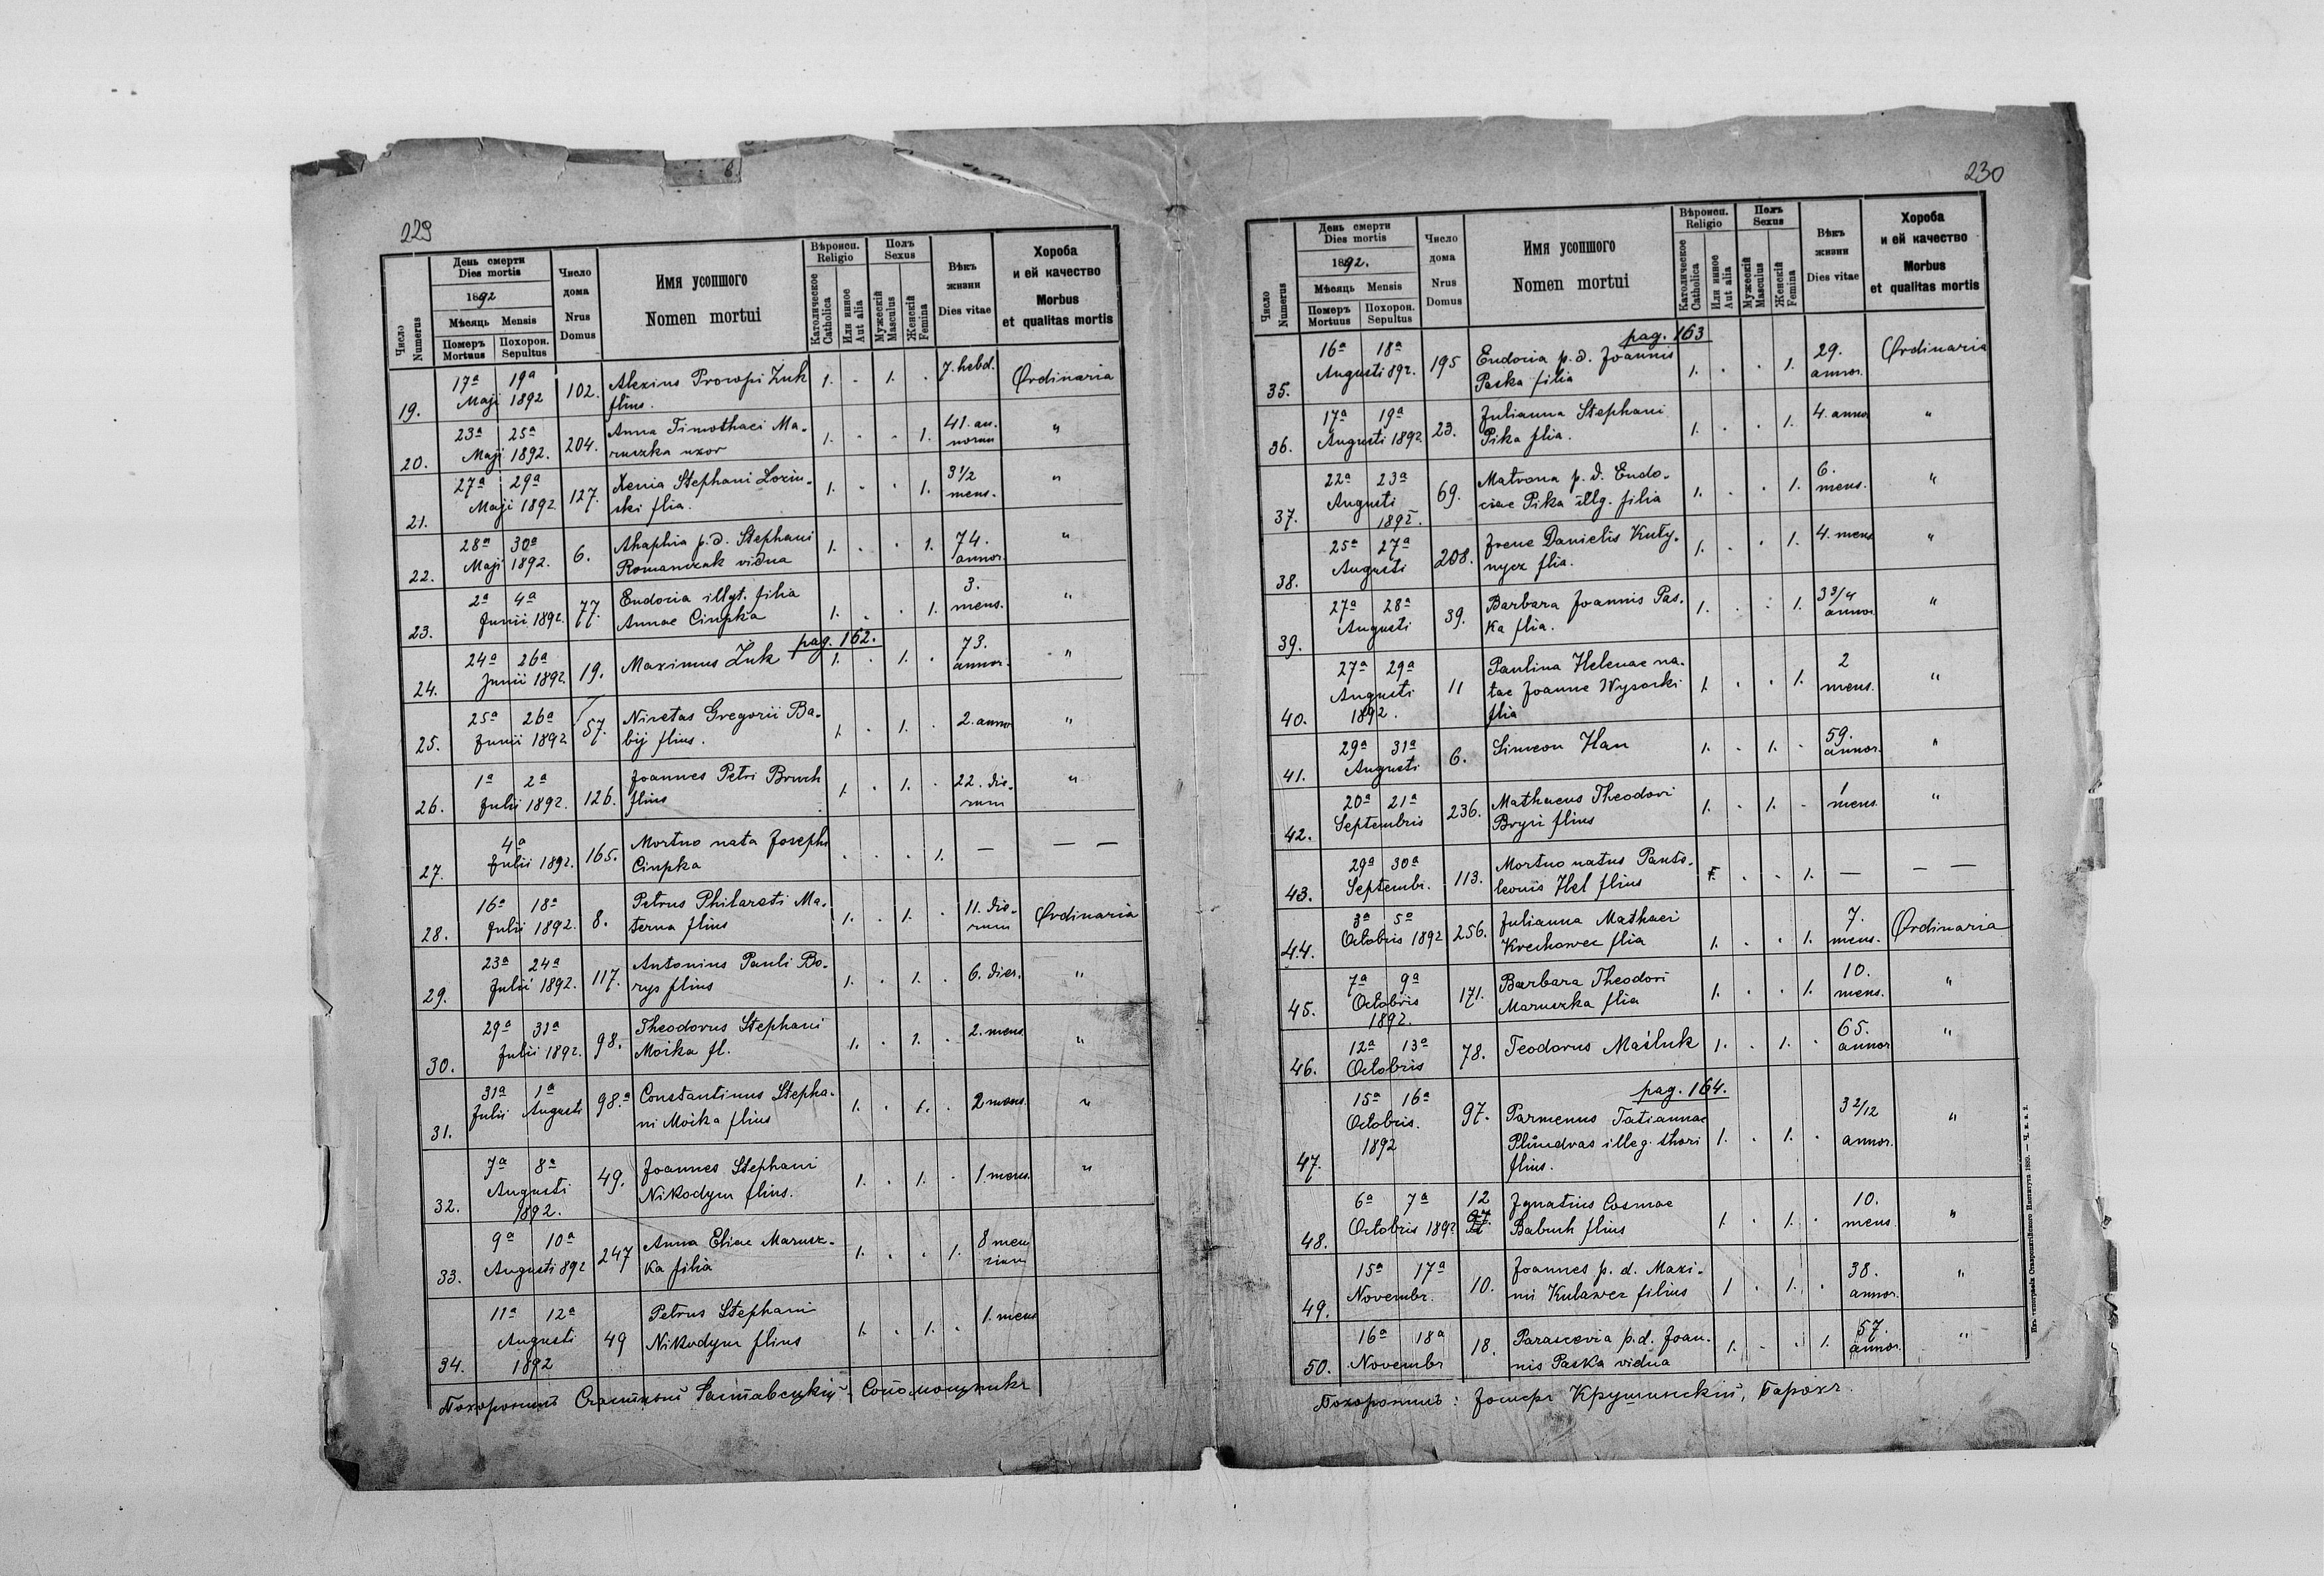 229
Число Numerus
День смерти Dies mortis
1892
Мѣсяць Mensis
Померъ Mortuus
Похорон. Sepultus
Число дома Nrus Domus
Имя усопшого Nomen mortui
Вѣроисп. Religio
Католическое Catholica
Или инное Aut alia
Полъ Sexus
Мужескій Masculus
Женскій Femina
Вѣкъ жизни Dies vitae
Хороба и ей качество Morbus et qualitas mortis
19. 17ª 19ª Maji 1892 102. Alexius Procopi Zuk flius. 1. . 1. . 7. hebd. Ordinaria
20. 23ª 25ª Maji 1892. 204. Anna Timothaei Ma-
ruszka uxor 1. . . 1. 41. an-
norum "
21. 27ª 29ª Maji 1892 127. Xenia Stephani Lozin-
ski flia. 1. . . 1. 3 1/2 mens. "
22. 28ª 30ª Maji 1892. 6. Ahaphia p. d. Stephani
Romanczak vidua 1. . . 1. 74. annor. "
23. 2ª 4ª Junii 1892. 77. Eudocia illgt. filia
Annae Ciupka 1. . . 1. 3. mens. "
pag. 162.
24. 24ª 26ª Junii 1892. 19. Maximus Żuk 1. . 1. . 73. annor. "
25. 25ª 26ª Junii 1892 57. Nicetas Gregorii Ba-
bij flius. 1. . 1. . 2. anno "
26. 1ª 2ª Julii 1892. 126. Joannes Petri Bruch
flius 1. . 1. . 22. die-
rum "
27. 4ª Julii 1892. 165. Mortuo nata Josephi
Ciupka . . . 1. — — —
28. 16ª 18ª Julii 1892. 8. Petrus Philareti Ma-
terna flius 1. . 1. . 11. die-
rum Ordinaria
29. 23ª 24ª Julii 1892. 117. Antonius Pauli Bo-
rys flius 1. . 1. . 6. dier. "
30. 29ª 31ª Julii 1892. 98. Theodorus Stephani
Moika fl. 1. . 1. . 2. mens "
31. 31ª Julii 1ª Augusti 98.ª Constantinus Stepha-
ni Moika flius 1. . 1. . 2 mens. "
32. 7ª 8ª Augusti 1892. 49. Joannes Stephani
Nikodym flius. 1. . 1. . 1. mens. "
33. 9ª 10ª Augusti 892 247 Anna Eliae Marusz-
ka filia 1. . . 1. 8 men
sium
34. 11ª 12ª Augusti 1892 49 Petrus Stephani
Nikodym flius 1. . 1. . 1. mens
Похоронилъ
230
Число Numerus
День смерти Dies mortis
1892.
Мѣсяць Mensis
Померъ Mortuus
Похорон. Sepultus
Число дома Nrus Domus
Имя усопшого Nomen mortui
Вѣроисп. Religio
Католическое Catholica
Или инное Aut alia
Полъ Sexus
Мужескій Masculus
Женскій Femina
Вѣкъ жизни Dies vitae
Хороба и ей качество Morbus et qualitas mortis
pag. 163
35. 16ª 18ª Augusti 892. 195 Eudocia p. d. Joannis
Paska filia 1. . . 1. 29. annor. Ordinaria
36. 17ª 19ª Augusti 1892 23. Julianna Stephani
Pika flia. 1. . . 1. 4. anno "
37. 22ª 23ª Augusti 1892. 69. Matrona p. d. Eudo-
ciae Pika illg. filia 1. . . 1. 6. mens. "
38. 25ª 27ª Augusti 208. Irene Danielis Kuty-
nycz flia. 1. . . 1. 4. mens "
39. 27ª 28ª Augusti 39. Barbara Joannis Pas-
ka flia. 1. . . 1. 3 3/4 annor "
40. 27ª 29ª Augusti 1892. 11 Paulina Helenae na-
tae Joanne Wysocki
flia 1. . . 1. 2 mens. "
41. 29ª 31ª Augusti 6. Simeon Han 1. . 1. . 59. annor. "
42. 20ª 21ª Septembris 236. Mathaeus Theodori
Bryn flius 1. . 1. . 1 mens. "
43. 29ª 30ª Septembr. 113. Mortuo natus Panto-
leonis Hel flius . . 1. — — —
44. 3ª 5ª Octobris 1892 256. Julianna Mathaei
Krechowec flia 1. . . 1. 7. mens. Ordinaria
45. 7ª 9ª Octobris 1892. 171. Barbara Theodori
Maruszka flia 1. . . 1. 10. mens. "
46. 12ª 13ª Octobris 78. Teodorus Maśluk 1. . 1. . 65. annor "
pag. 164.
47. 15ª 16ª Octobris. 1892 97. Parmenus Tatiannae
Plundras illeg. thori
flius. 1. . 1. . 3 2/12 annor. "
48. 6ª 7ª Octobris 1892 12 Ignatius Cosmae
Babuch flius 1. . 1. . 10. mens "
49. 15ª 17ª Novembr. 10. Joannes p. d. Maxi-
mi Kulawec filius 1 . 1. . 38. annor. "
50. 16ª 18ª Novembr 18. Parascevia p. d. Joan-
nis Paska vidua 1. . . 1. 57. annor. "
Похоронилъ: Іосифъ Крушинскій, Парохъ
Изъ типографіи Ставропигійского Института 1889. — Ч. в. п. 2.